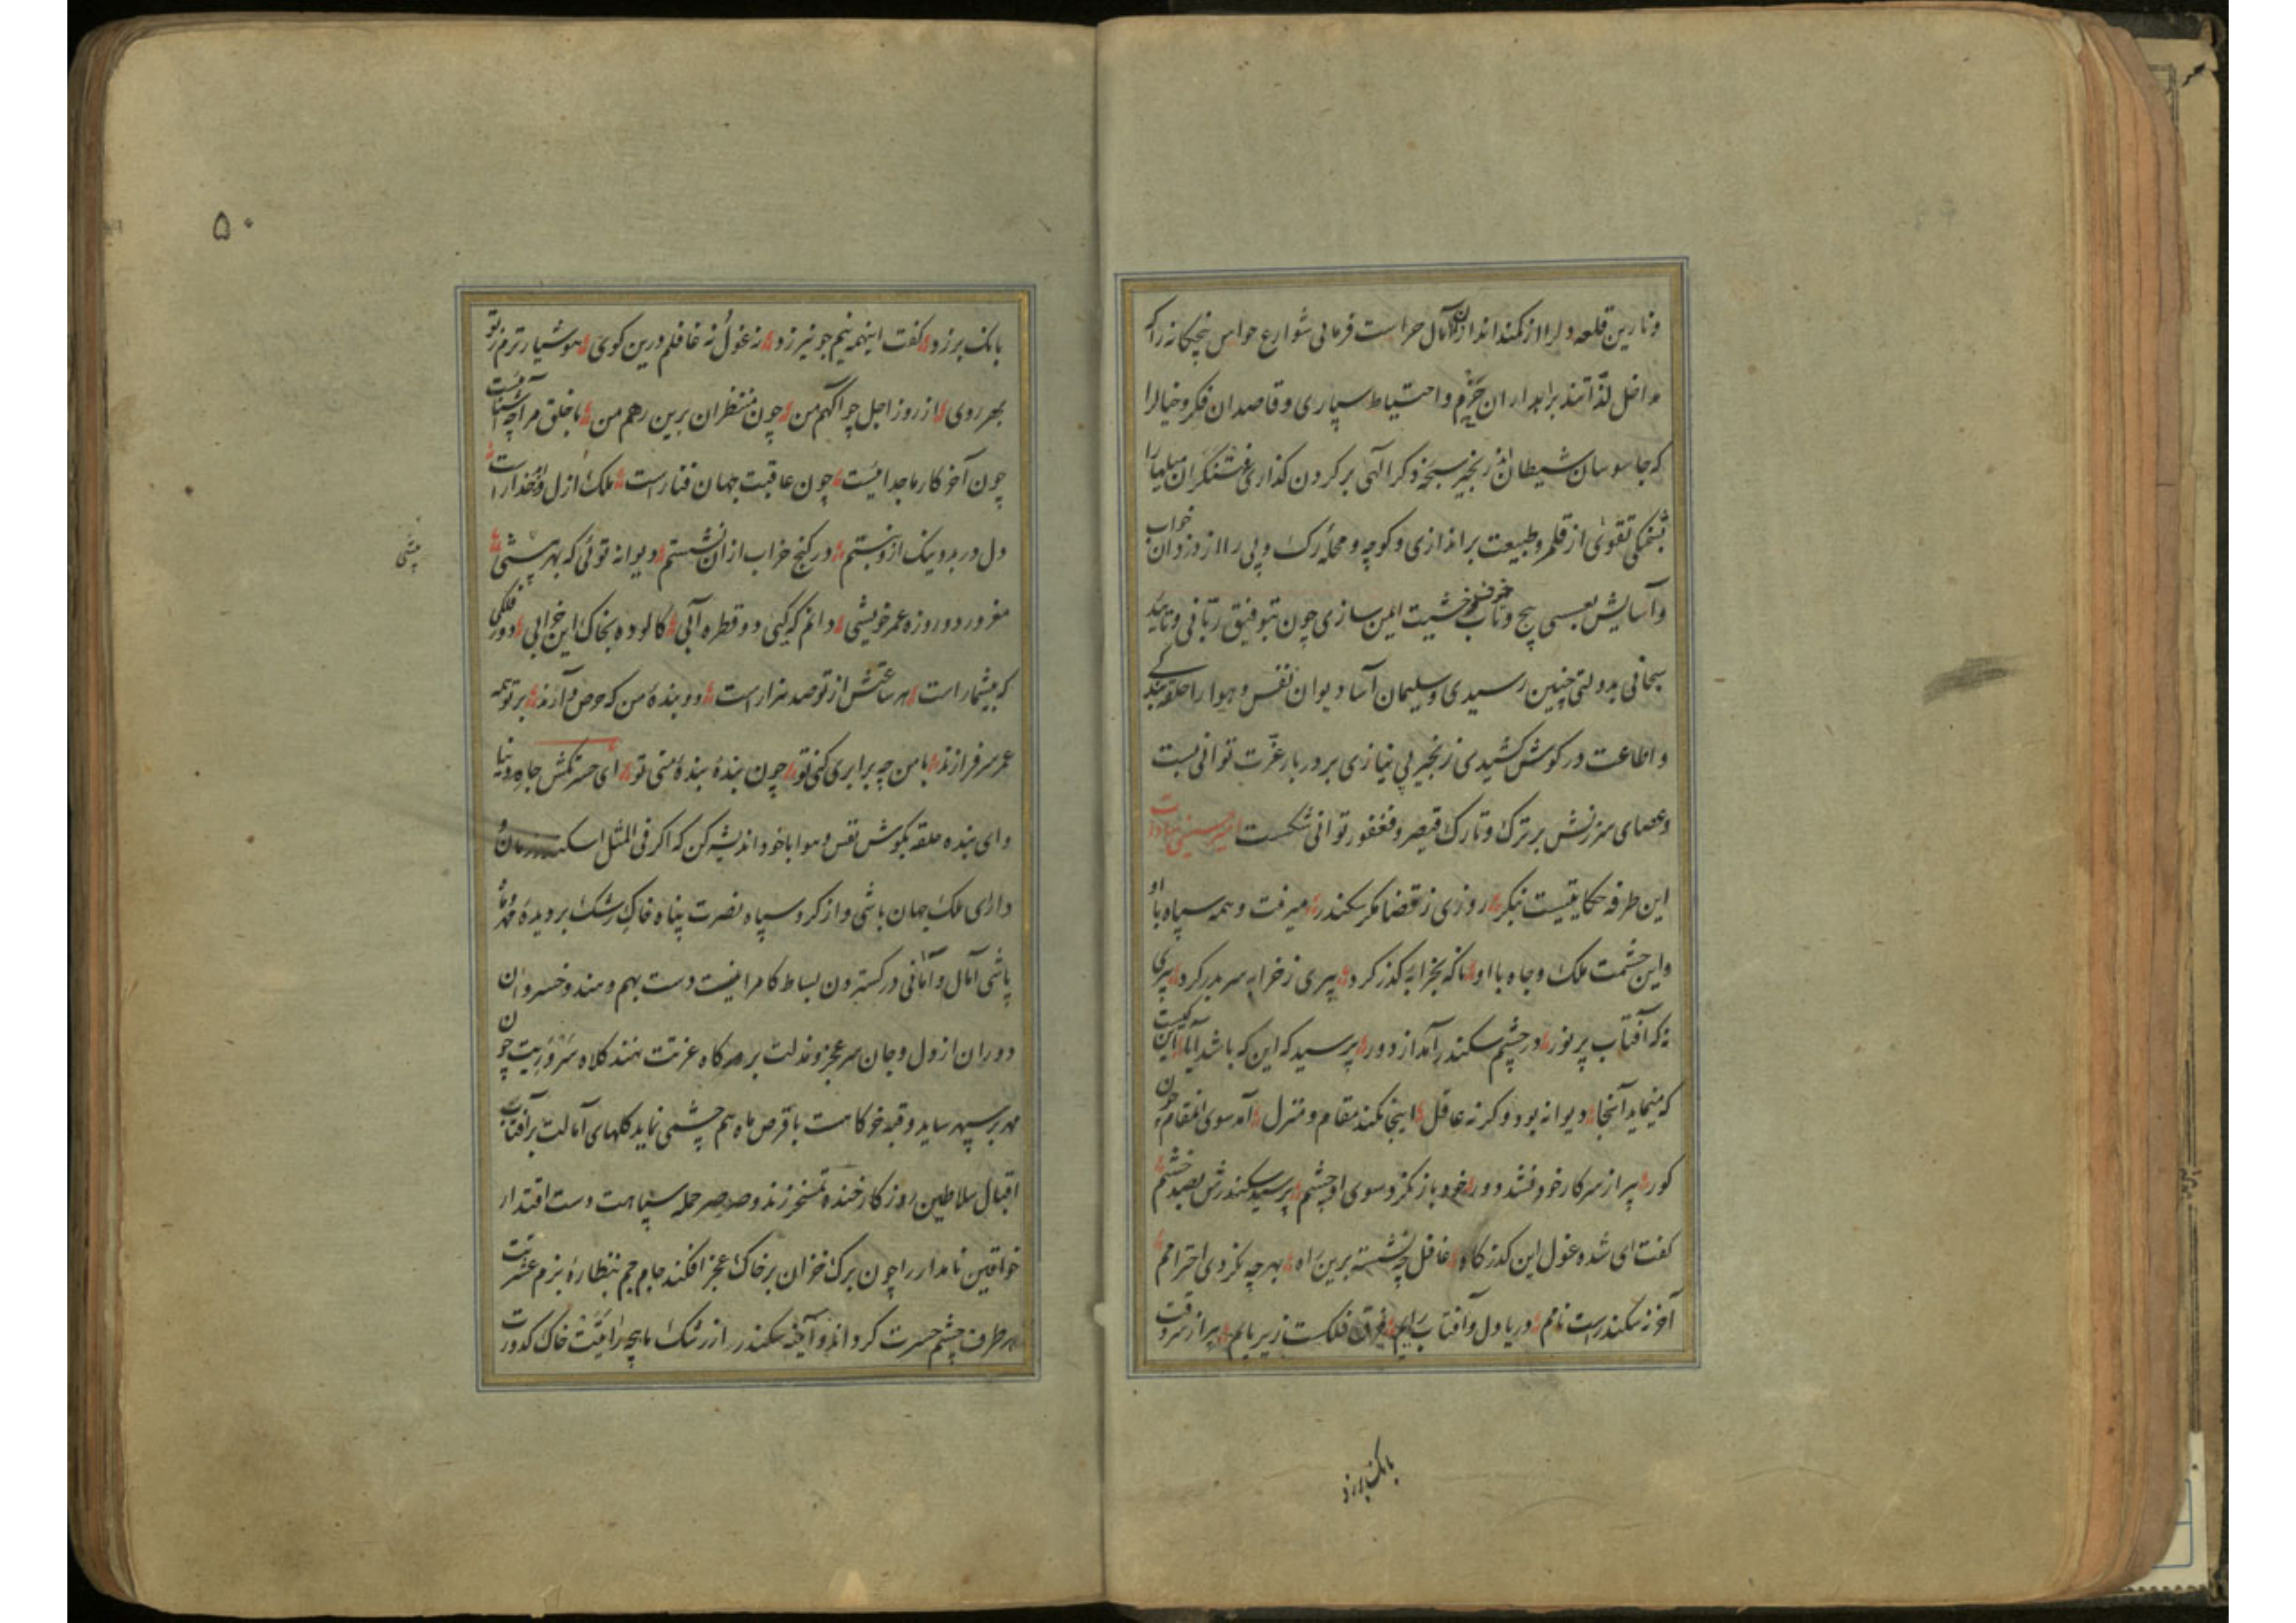 و نارین قلعه دل را از کمند اندازان آمال حراست فرمائی شوارع حواس پنجگانه را که
مداخل لذّاتند براهداران حزم و احتیاط سپاری و قاصدان فکر و خیال را
که جاسوسان شیطان اند زنجیر سبحه ذکر الهی بر کردن کذاری
تقوی از قلمرو طبیعت براندازی و کوچه و محلهٔ رک و پی را از دزدان خواب
و آسایش بعسسی پیچ و تاب خوف و خشیت ایمن سازی چون بتوفیق ربّانی و تایید
سبحانی بدولتی چنین رسیدی و سلیمان آسا دیوان نفس و هوا را حلقه بندکی
و اطاعت در کوش کشیدی زنجیر بی نیازی بر دربار عزّت توانی بست
و عصای سرزنش بر ترک و تارک قیصر و فغفور توانی شکست امیر حسینی سادات
این طرفه حکایتیست بنکر روزی ز قضا مکر سکندر میرفت و همه سپاه با او
و این حشمت ملک و جاه با او ناکه بخرابهٔ کذر کرد پیری ز خرابه سر بدر کرد پیری
نه که آفتاب پر نور در چشم سکندر آمد از دور پرسید که این که باشد آیا این کیست
که مینماید آنجا دیوانه بود وکرنه عاقل اینجا نکند مقام و منزل آمد سوی آنمقام چون
کور پیر از سر کار خود نشد دور خود باز نکرد سوی او چشم پرسید سکندرش بصد خشم
کفت ای شده غول این کذرکاه غافل چه نشستهٔ برین راه بهر چه نکردی احترامم
آخر نه سکندرست نامم دریا دل و آفتاب رایم فرق فلکست زیر پایم پیر از سر وقت
بانک برزد
۵۰
بانک برزد کفت اینهمه نیم جو نیرزد نه غول نه غافلم درین کوی هوشیار ترم ز تو
بهر روی از روز اجل چو آکهم من چون منتظران برین رهم من با خلق مرا چه آشنائیست
چون آخر کار ما جدائیست چون عاقبت جهان فناراست ملک ازل و ابد خداراست
دل در بد و نیک ازو نبستم در کنج خراب ازان نشستم دیوانه توئی که بهر پیشی
مغرور دو روزه عمر خویشی دانم که کئی دو قطره آبی کالوده بخاک این خرابی دور فلکی
که بیشمار است هر ساعتش از تو صد هزار است دو بندهٔ من که حرص و آزند بر تو همه
عمر سرفرازند با من چه برابری کنی تو چون بندهٔ بندهٔ منی تو ای حسرتکش جاه دنیا
و ای بنده حلقه بکوش نفس و هوا با خود اندیشه کن که اکر فی المثل اسکندر زمان و
دارای ملک جهان باشی و از کرد سپاه نصرت پناه خاک رشک بر دیدهٔ مهر و ماه
پاشی آمال و امانی در کستردن بساط کامرانیت دست بهم دهند و خسروان
دوران از دل و جان سر عجز و مذلت بر درکاه عزتت نهند کلاه سروریت چون
مهر بر سپهر ساید و قبه خرکاهت با قرص ماه هم چشمی نماید کلهای آمالت بر آفتاب
اقبال سلاطین روزکار خنده تمسخر زند و صرصر حمله سپاهت دست اقتدار
خواقین نامدار را چون برک خزان بر خاک عجز افکند جام جم بنظارهٔ بزم عشرتت
هر طرف چشم حسرت کرداند و آینه سکندر از رشک ماهچه رایتت خاک کدورت
پیشی